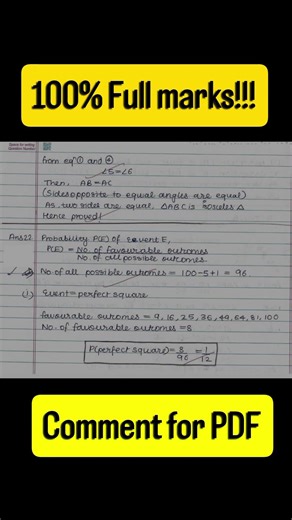 100% Full marks!!!
from eqⁿ ① and ④
∠5=∠6
Then, AB=AC
(Sides opposite to equal angles are equal)
As two sides are equal, △ABC is isosceles △
Hence proved!
Ans22 Probability P(E) of event E,
P(E) = No. of favourable outcomes
No. of all possible outcomes.
No. of all possible outcomes = 100-5+1 = 96
Event = perfect square
favourable outcomes = 9, 16, 25, 36, 49, 64, 81, 100
No. of favourable outcomes = 8
P(perfect square) = 8/96 = 1/12
Comment for PDF